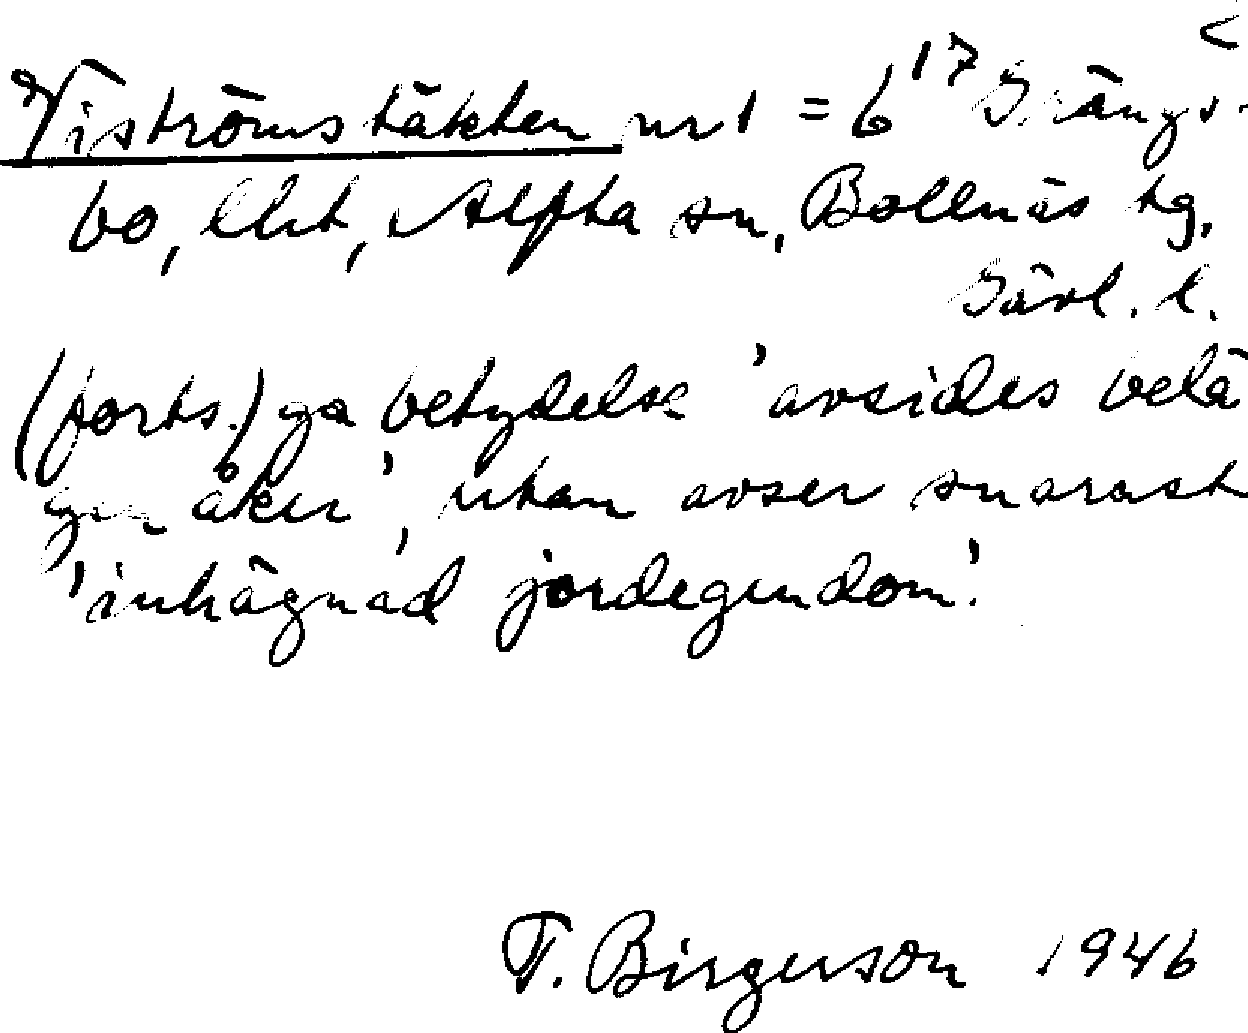 Viströmstäkten nr 1 = 6 17 Grängs-
bo, lht, Alfta sn, Bollnäs tg,
Gävl. l.
(forts.) ga betydelse 'avsides belä
gen åker', utan avser snarast
'inhägnad jordegendom'.
T. Birgerson 1946